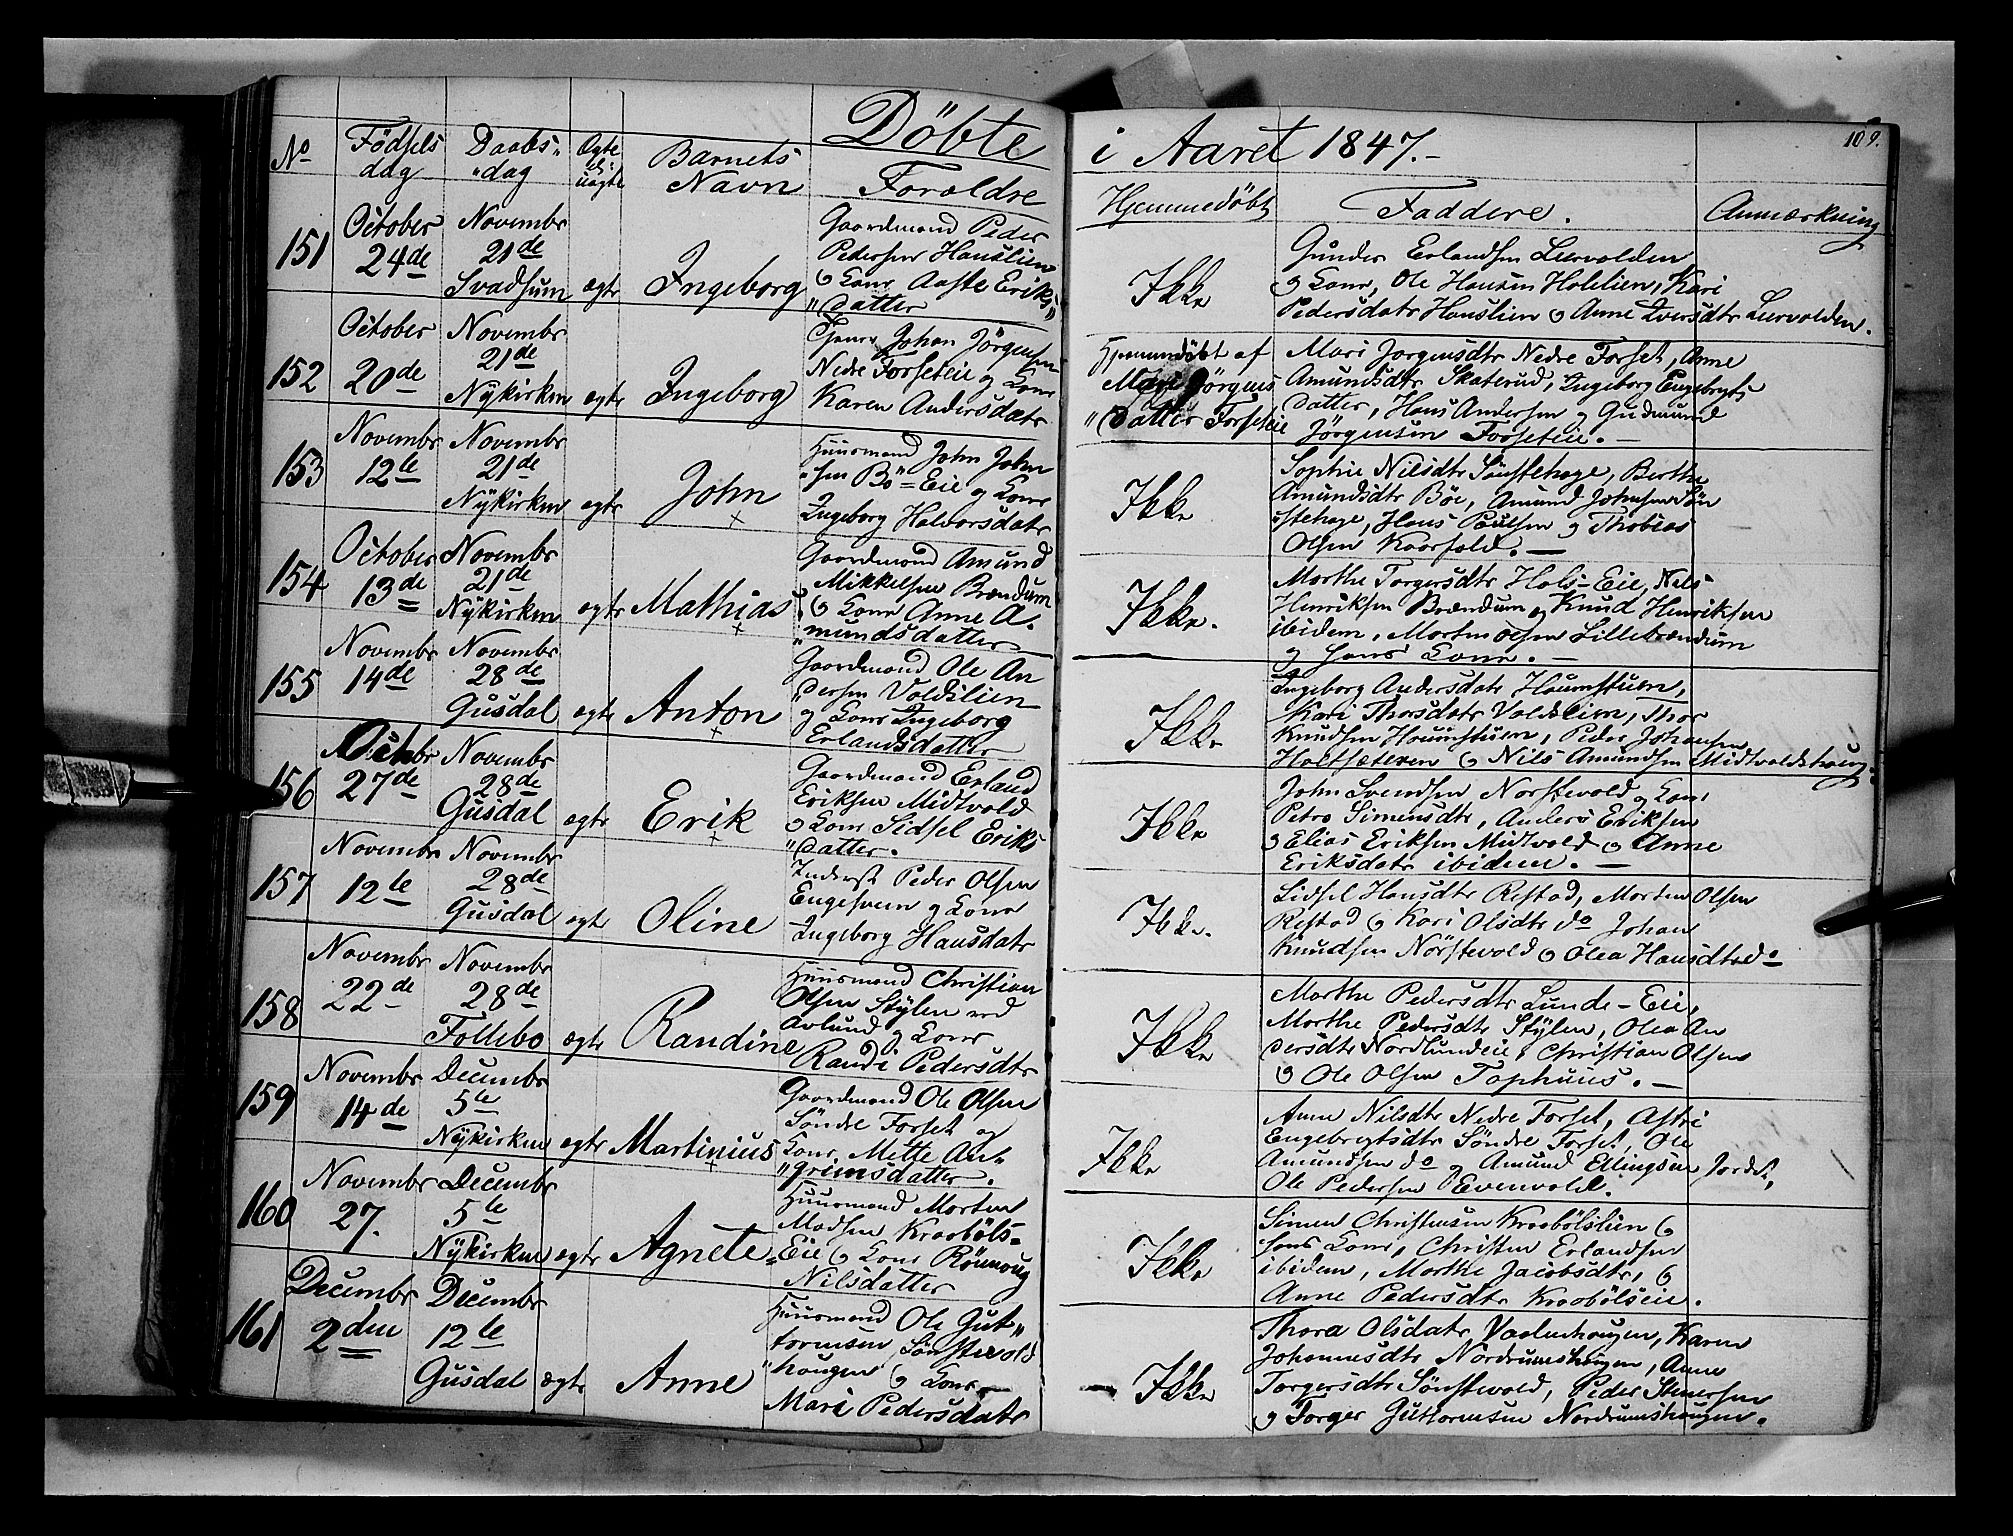 Döbte
i Aaret 1847.-
109.
No
Födsels dag
Daabs- dag
Ægte el: uægte
Barnets Navn
Forældre
Hjemmedöbt
Faddere.
Anmærkning
151
October 24de
Novembr 21de Svadsum
ægte
Ingeborg
Gaardmand Peder
Pedersen Hauslien
og Kone Aaste Eriks
"datter
Ikke
Gunder Erlandsen Leervolden
og Kone, Ole Hansen Holelien, Kari
Pedersdatr Hauslien og Anne Iversdtr Leervolden.
152
October 20de
Novembr 21de Nykirken
ægte
Ingeborg
Tjener Johan Jörgensen
Nedre Forseteie og Kone
Karen Andersdatr
Hjemmedöbt af
Mari Jörgens
"datter Forseteie
Mari Jorgensdtr Nedre Forset, Anne
Amundsdtr Skaterud, Ingeborg Engebrgts
datter, Hans Andersen og Gudmund
Jörgensen Forseteie.-
153
Novembr 12te
Novembr 21de Nykirken
ægte
John
Huusmand John John
"sen Bö-Eie og Kone
Ingeborg Halvorsdatr
Ikke
Sophie Nilsdtr Sönstehage, Berthe
Amundsdtr Böe, Amund Johnsen Sön
"stehage, Hans Paulsen og Thobias
Olsen Kaarfald.-
154
October 13de
Novembr 21de Nykirken
ægte
Mathias
Gaardmand Amund
Mikkelsen Brændum
og Kone Anne A-
"mundsdatter
Ikke.
Marthe Torgersdtr Hols-Eie, Nils
Henriksen Brændum og Knud Henriksen
ibidem, Morten Olsen Lillebrændum
og hans Kone.-
155
Novembr 14de
Novembr 28de Gusdal
ægte
Anton
Gaardmand Ole An
"dersen Voldslien
og Kone Ingeborg
Erlandsdatter
Ikke
Ingeborg Andersdatr Haumstuen,
Kari Thorsdatr Voldslien, Thor
Knudsen Haumstuen, Peder Johansen
Holtseteren og Nils Amundsen Midtvoldshaug.
156
Octbr 27de
Novembr 28de Gusdal
ægte
Erik
Gaardmand Erland
Eriksen Midtvold
og Kone Sidsel Eriks
"datter.
Ikke
John Svendsen Norstevold og Kone
Petro Simensdtr, Anders Eriksen
og Elias Eriksen Midtvold og Anne
Eriksdatr ibidem.-
157
Novembr 12te
Novembr 28de Gusdal
ægte
Oline
Inderst Peder Olsen
Engesveen og Kone
Ingeborg Hansdatr
Ikke.
Sidsel Hansdtr Ristad, Morten Olsen
Ristad og Kari Olsdtr do Johan
Knudsen Nörstevold og Olea Hansdtr do
158
Novembr 22de
Novembr 28de Follebo
ægte
Randine
Huusmand Christian
Olsen Stylen ved
Avlund og Kone
Randi Pedersdtr
Ikke
Marthe Pedersdtr Lunde-Eie,
Marthe Pedersdtr Stylen, Olea An
dersdtr Nordlundeie, Christian Olsen
og Ole Olsen Tophuus.-
159
Novembr 14de
Decembr 5te Nykirken
ægte
Martinius
Gaardmand Ole Olsen
Söndre Forset og
Kone, Mette Arn-
"grimsdatter.
Ikke
Anne Nilsdtr Nedre Forset, Astri
Engebrgtsdtr Söndre Forset, Ole
Amundsen do og Amund Ellingsen Jordet,
Ole Pedersen Evenvold.
160
Novembr 27.
Decembr 5te Nykirken
ægte
Agnete
Huusmand Morten
Madsen Kraaböls-
Eie og Kone Rönnoug
Nilsdatter
Ikke
Simen Christensen Kraabölslien og
hans Kone, Christen Erlandsen
ibidem, Marthe Jacobsdtr, og
Anne Pedersdtr Kraabölseie.
161
Decembr 2den
Decembr 12te Gusdal
ægte
Anne
Huusmand Ole Gut-
tormsen Sönstevold
"haugen og Kone
Mari Pedersdatr
Ikke
Thora Olsdatr Vaalenhaugen, Karen
Johannesdtr Nordrumshaugen, Anne
Torgersdtr Sönstevold, Peder Stenersen
og Torger Guttormsen Nordrumshaugen.